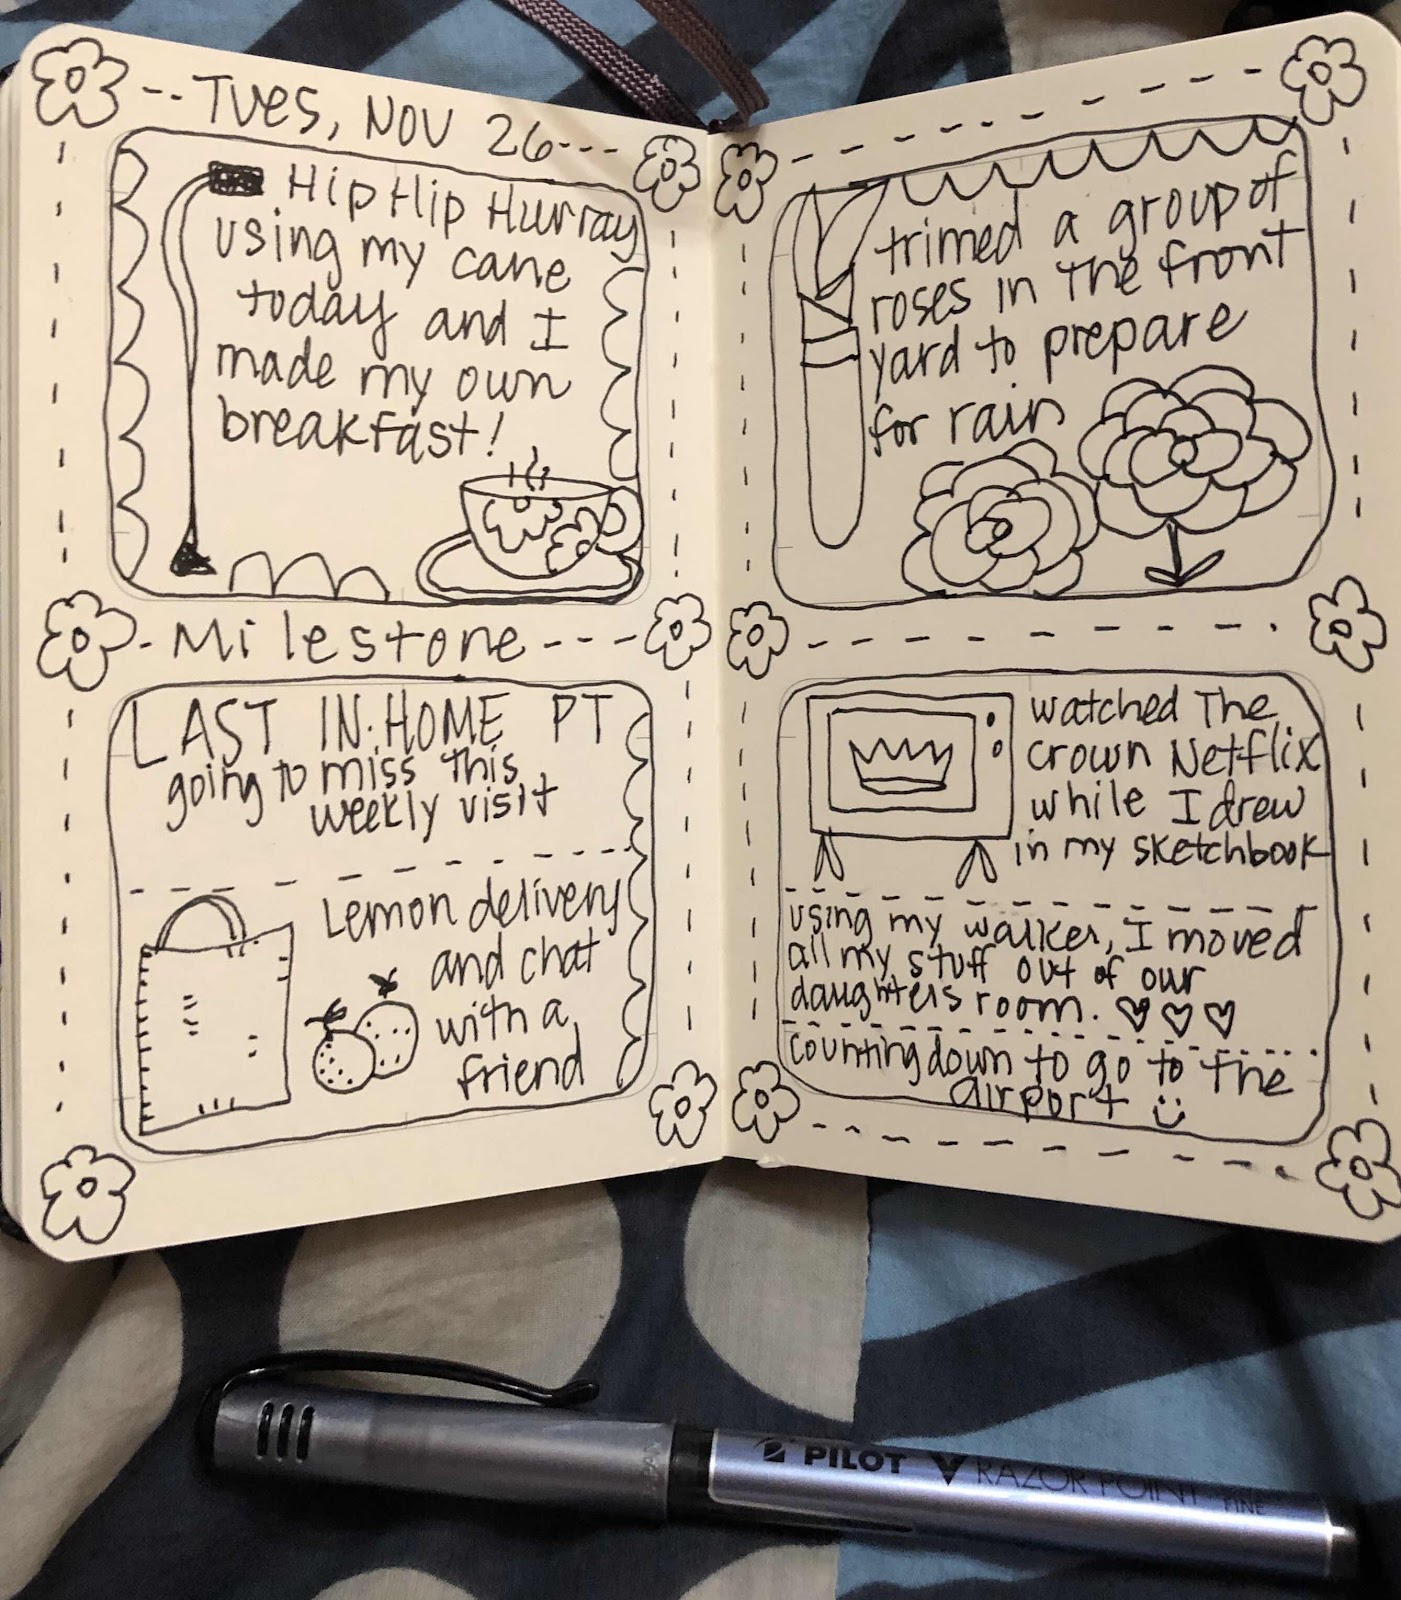 Tues, Nov 26
Hip Hip Hurray
using my cane
today and I
made my own
breakfast!
Milestone
LAST IN-HOME PT
going to miss this
weekly visit
Lemon delivery
and chat
with a
friend
trimed a group of
roses in the front
yard to prepare
for rain
watched The
Crown Netflix
while I drew
in my sketchbook
using my walker, I moved
all my stuff out of our
daughters room. ♡♡♡
counting down to go to the
airport :)
PILOT RAZOR POINT FINE
JAPAN